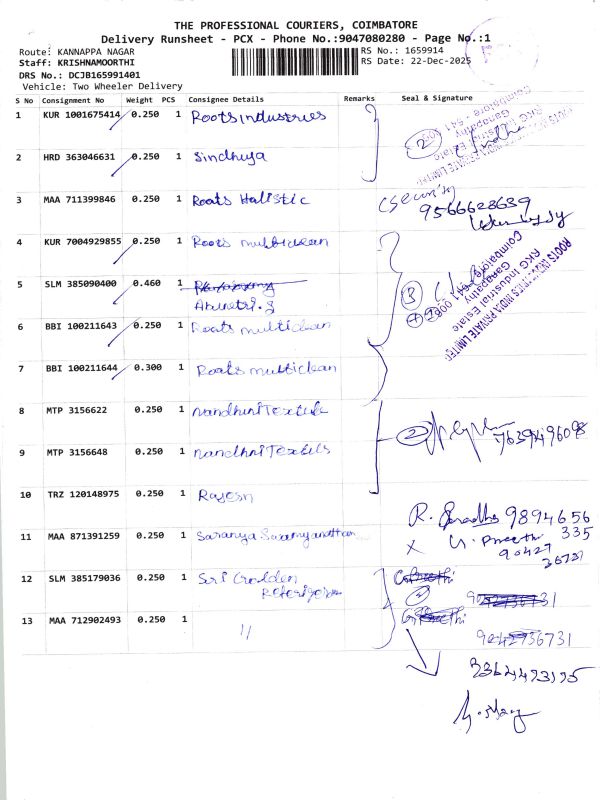 THE PROFESSIONAL COURIERS, COIMBATORE
Delivery Runsheet - PCX - Phone No.:9047080280 - Page No.:1
Route: KANNAPPA NAGAR
RS No.: 1659914
Staff: KRISHNAMOORTHI
RS Date: 22-Dec-2025
DRS No.: DCJB165991401
Vehicle: Two Wheeler Delivery
S No Consignment No Weight PCS Consignee Details Remarks Seal & Signature
1 KUR 1001675414 0.250 1 Roots Industries
2 HRD 363046631 0.250 1 Sindhuya
2
ROOTS INDUSTRIES INDIA PRIVATE LIMITED
RKG Industrial Estate
Ganapathy
Coimbatore - 641 006
3 MAA 711399846 0.250 1 Roots Halistic
9566628639
4 KUR 7004929855 0.250 1 Roots multiclean
5 SLM 385090400 0.460 1
3
ROOTS INDUSTRIES INDIA PRIVATE LIMITED
RKG Industrial Estate
Ganapathy
Coimbatore - 641 006
6 BBI 100211643 0.250 1 Roots multiclean
7 BBI 100211644 0.300 1 Roots multiclean
8 MTP 3156622 0.250 1 nandhini Textile
2 7639496098
9 MTP 3156648 0.250 1 nandhni Textils
10 TRZ 120148975 0.250 1 Rajesn
R. 9894656
335
11 MAA 871391259 0.250 1 Saranya
X G. Preethi
90427
36731
12 SLM 385179036 0.250 1 Sri Golden
2
13 MAA 712902493 0.250 1 11
9042736731